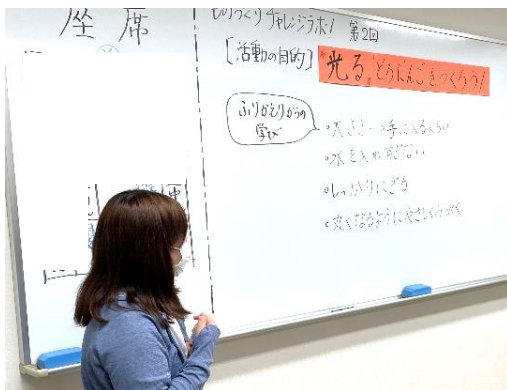 座席
ものづくりチャレンジラボ! 第2回
[活動の目的]
光る どろだんごをつくろう!
ふりかえりからの
学び
・大きさ→手に入るくらい
・水を入れすぎない
・しっかりにぎる
・丸くなるようにやさしくみがく